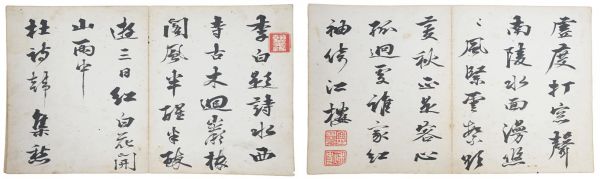 打空
南陵水面漫悠
〻風緊雲輕欲
变秋正是客心
孤迥處誰家紅
袖倚江樓
李白題詩水西
寺古木迴巖樓
閣風半醒半醉
遊三日紅白花開
山雨中
杜詩